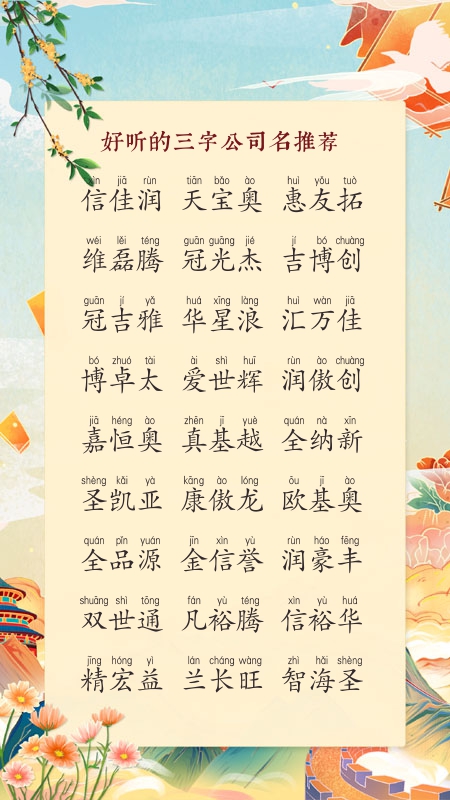 好听的三字公司名推荐
xìn jiā rùn tiān bǎo ào huì yǒu tuò
信佳润 天宝奥 惠友拓
wéi lěi téng guān guāng jié jí bó chuàng
维磊腾 冠光杰 吉博创
guān jí yǎ huá xīng làng huì wàn jiā
冠吉雅 华星浪 汇万佳
bó zhuó tài ài shì huī rùn ào chuàng
博卓太 爱世辉 润傲创
jiā héng ào zhēn jī yuè quán nà xīn
嘉恒奥 真基越 全纳新
shèng kǎi yà kāng ào lóng ōu jī ào
圣凯亚 康傲龙 欧基奥
quán pǐn yuán jīn xìn yù rùn háo fēng
全品源 金信誉 润豪丰
shuāng shì tōng fán yù téng xìn yù huá
双世通 凡裕腾 信裕华
jīng hóng yì lán cháng wàng zhì hǎi shèng
精宏益 兰长旺 智海圣